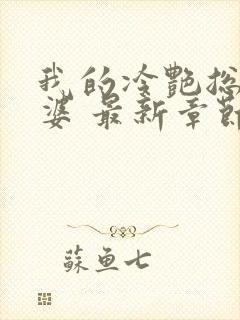 我的冷艷总
婆 最新章節
蘇魚七